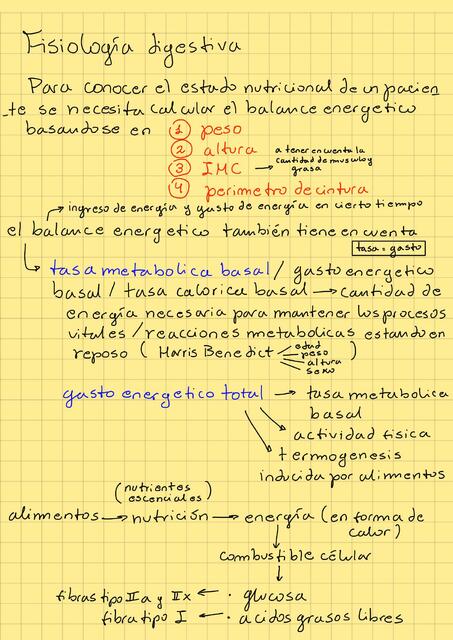 Fisiología digestiva
Para conocer el estado nutricional de un pacien
te se necesita calcular el balance energetico
basandose en ① peso
② altura
③ IMC → a tener en cuenta la cantidad de musculo y grasa
④ perimetro de cintura
→ ingreso de energía y gasto de energía en cierto tiempo
el balance energetico también tiene en cuenta
tasa = gasto
→ tasa metabolica basal / gasto energetico
basal / tasa calorica basal → cantidad de
energía necesaria para mantener los procesos
vitales / reacciones metabolicas estando en
reposo ( Harris Benedict edad peso altura sexo )
gasto energetico total → tasa metabolica
basal
actividad fisica
termogenesis
inducida por alimentos
(nutrientes
escenciales)
alimentos → nutrición → energía (en forma de
calor)
combustible célular
fibras tipo IIa y IIx ← · glucosa
fibra tipo I ← · acidos grasos libres